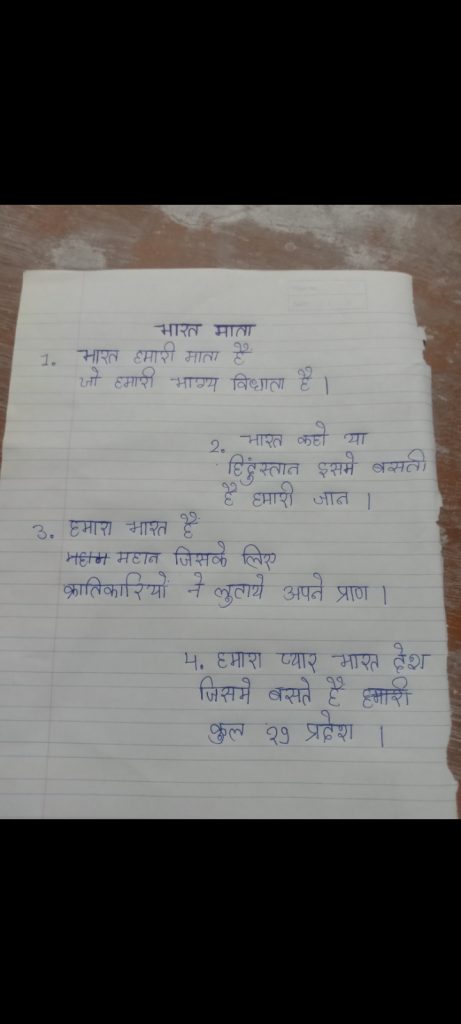 भारत माता
1. भारत हमारी माता है
जो हमारी भाग्य विधाता है ।
2. भारत कहो या
हिंदुस्तान इसमे बसती
है हमारी जान ।
3. हमारा भारत है
महान महान जिसके लिए
क्रातिकारियों ने लुताये अपने प्राण ।
4. हमारा प्यार भारत देश
जिसमे बसते है हमारी
कुल २९ प्रदेश ।